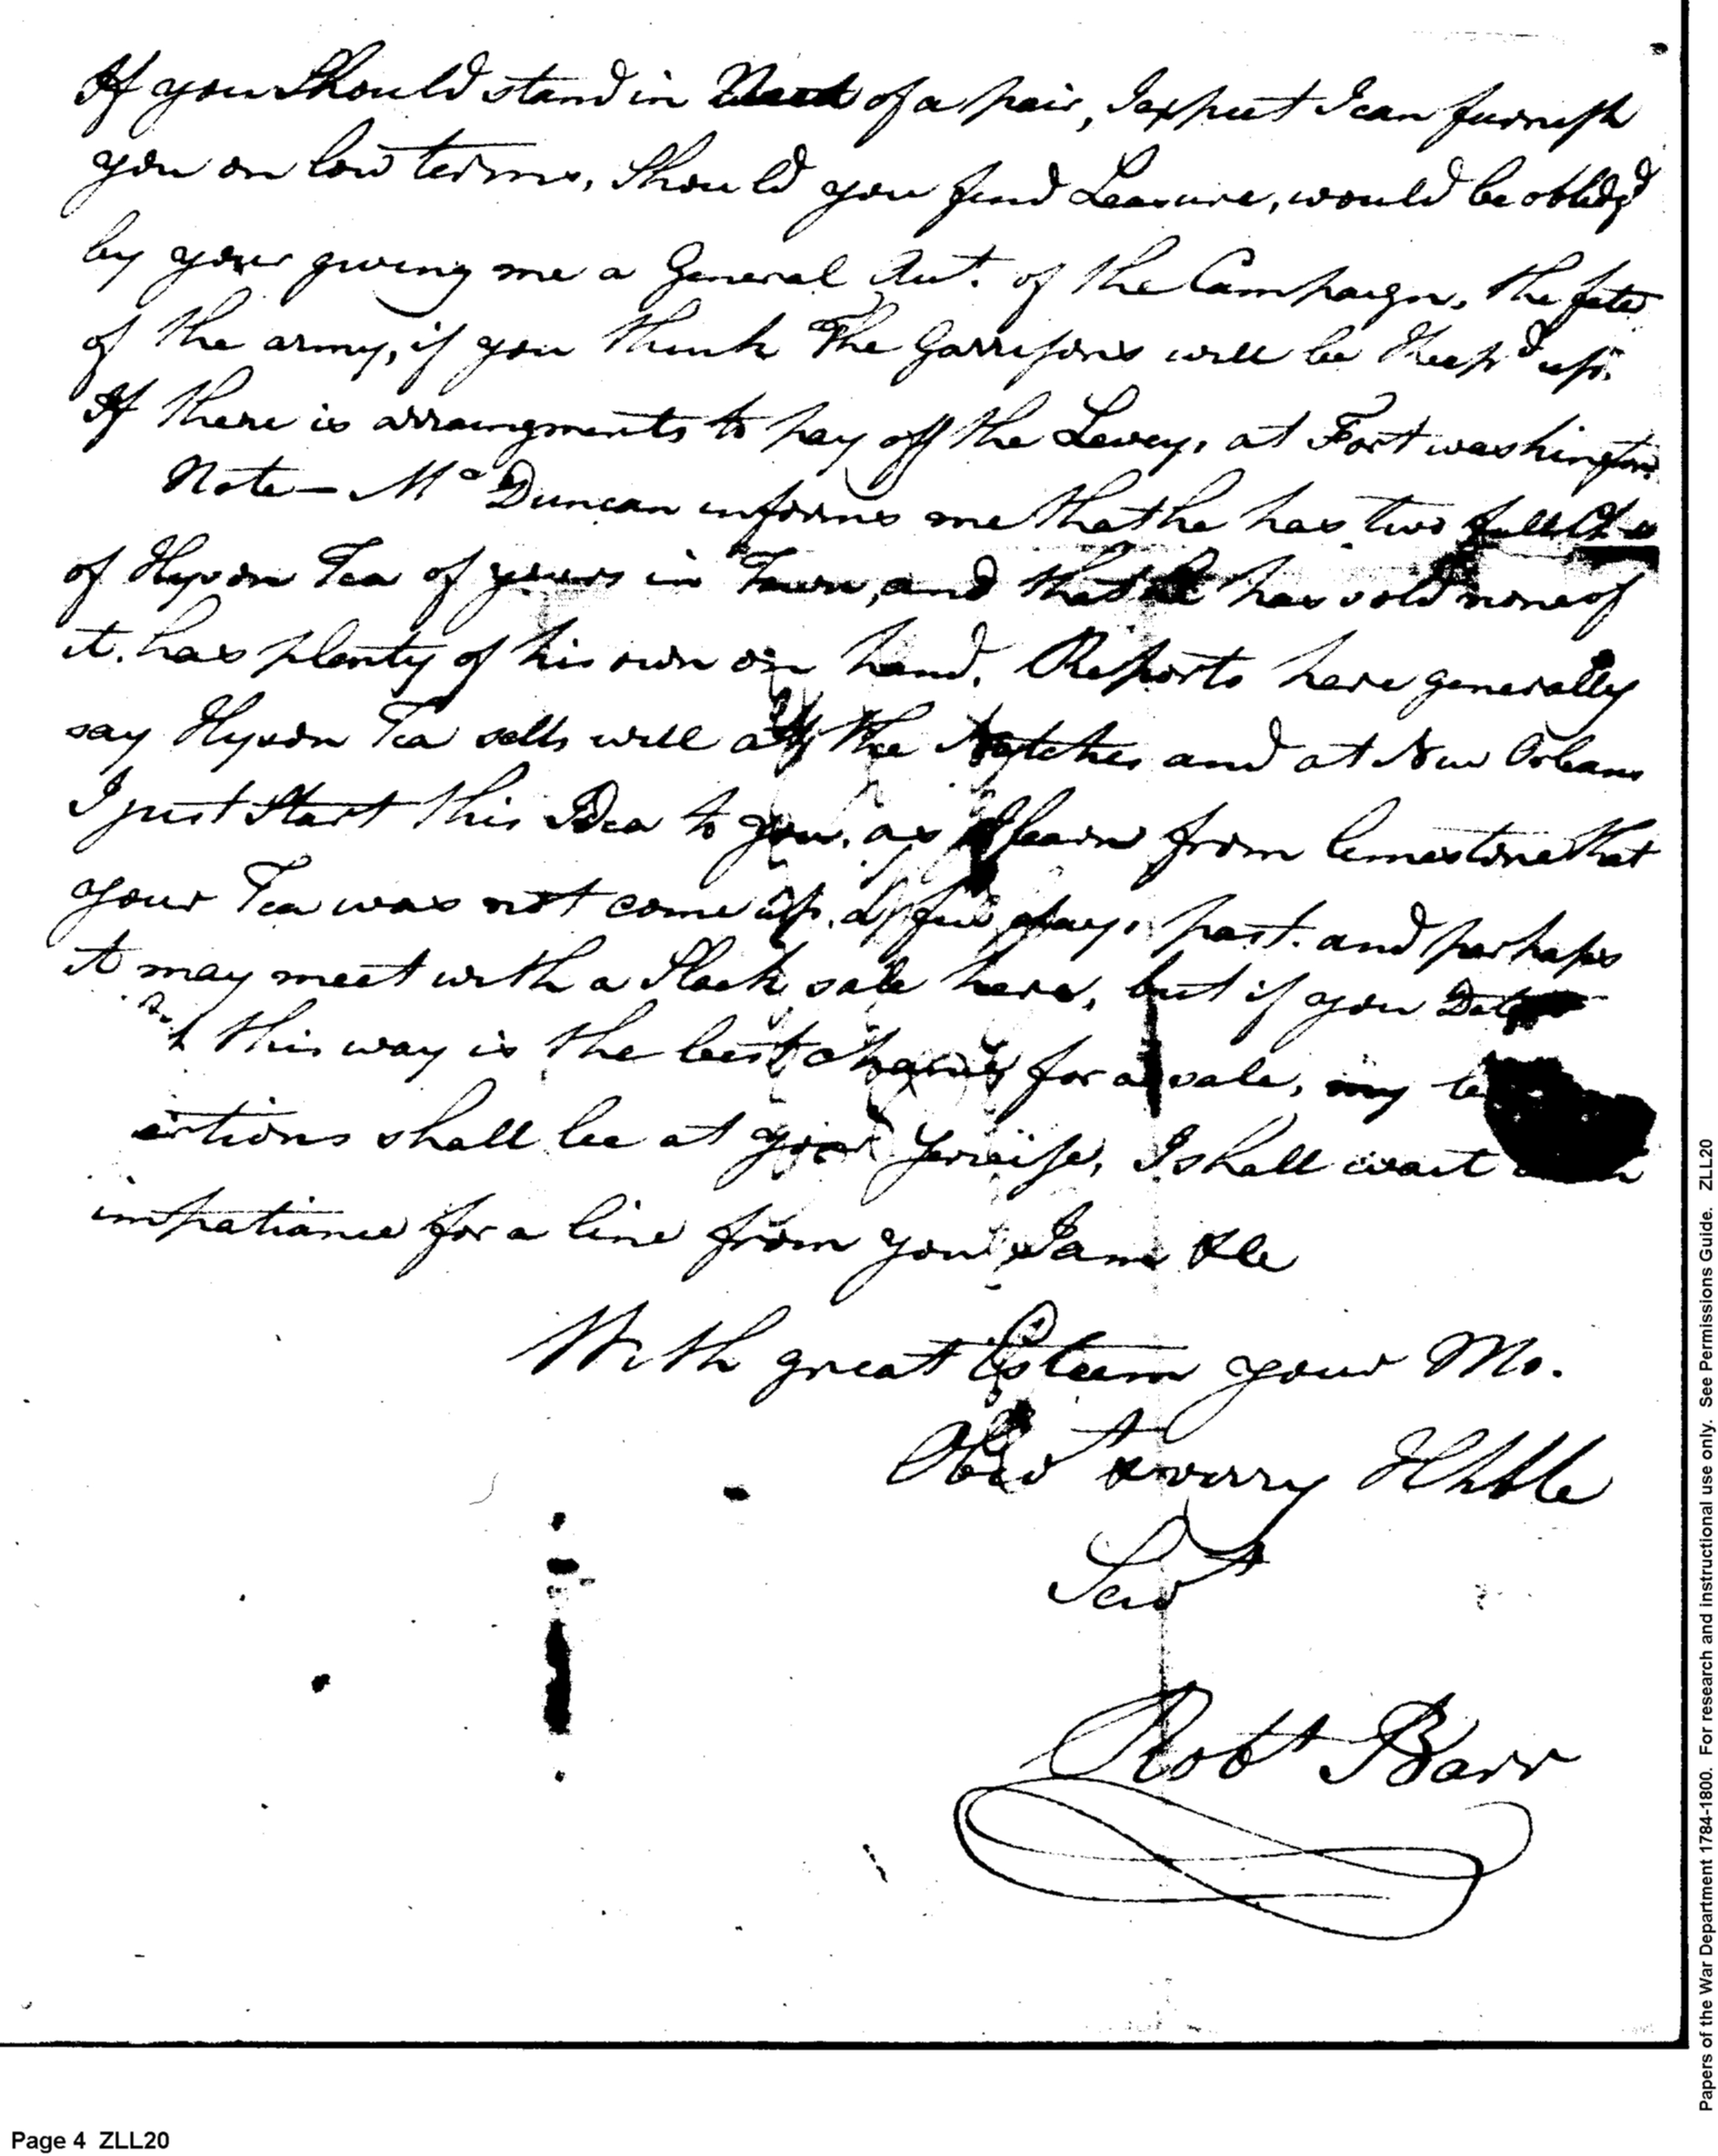 If you Should stand in Need of a pair, I expect I can furnish
you on low terms, Should you find Leasure, would be oblidg'd
by your giving me a General Act. of the Campaign, the fate
of the army, if you think The Garrisons will be Keep'd up.
If there is arrangments to pay off the Levey, at Fort washington
Note — Mr Duncan informs me that he has two full
of Hyson Tea of yours in Town, and that he has sold none of
it. has plenty of his own on hand. Reports here generally
say Hyson Tea sells well at the Natches and at New Orleans
I just Start this Idea to you, as I learn from limestone that
your Tea was not come up. a few days past. and perhaps
it may meet with a Slack sale here, but if you
this way is the best chance for a sale, my
ertions shall be at your Serveise, I shall wait
impatiance for a line from you I am &c
With great Esteem your Mo.
Obed & verry Hble
Servt
Robt Barr
Page 4 ZLL20
Papers of the War Department 1784-1800. For research and instructional use only. See Permissions Guide. ZLL20